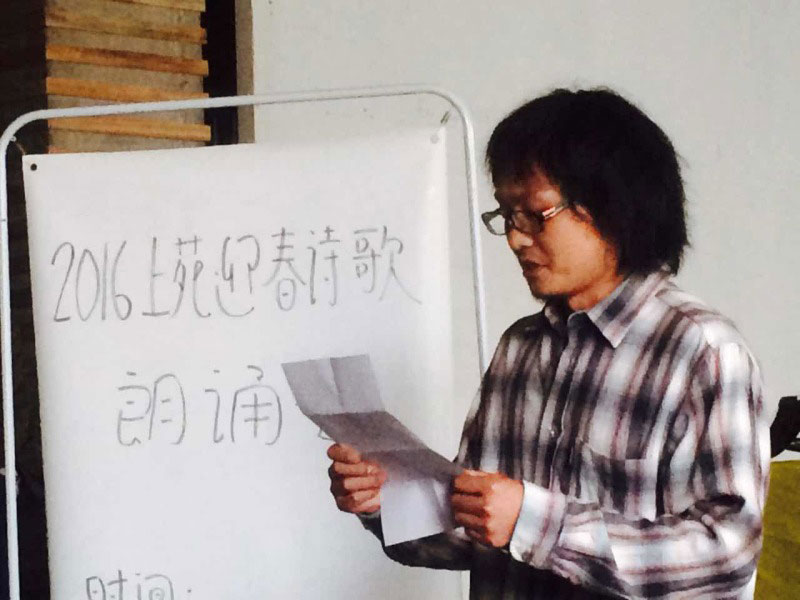 2016上苑迎春诗歌
朗诵
时间: